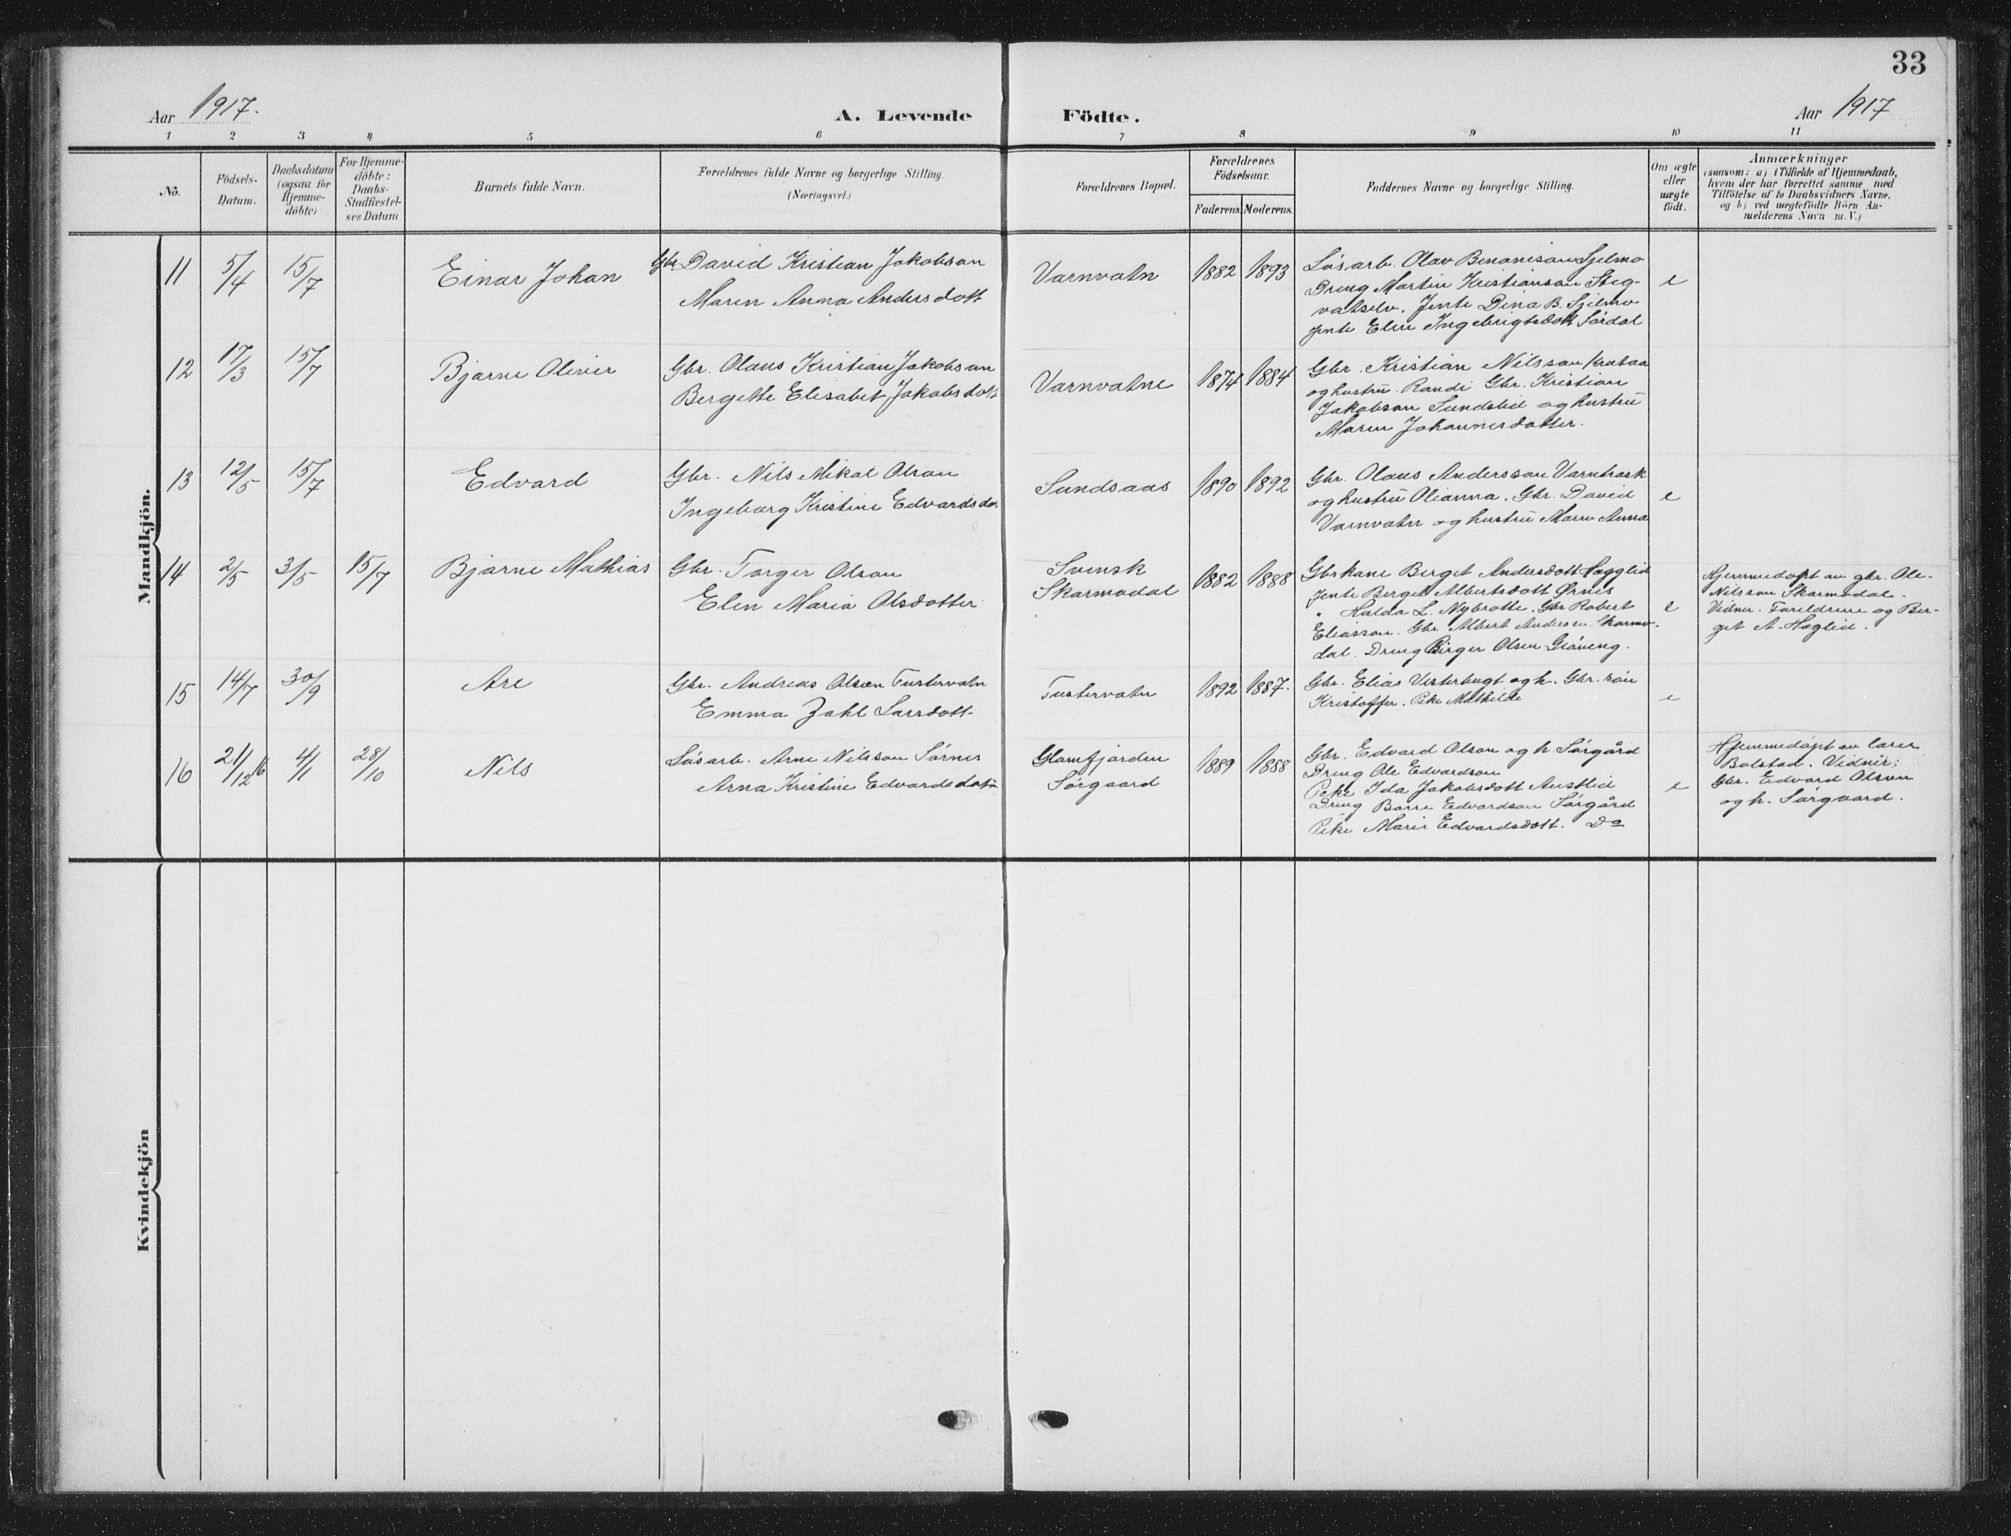 33
Aar 1917.
A. Levende
Födte.
Aar 1917
1 2 3 4 5 6 7 8 9 10 11
No.
Födsels-
Datum.
Daabsdatum
(ogsaa for
Hjemme-
döbte)
For Hjemme-
döbte:
Daabs-
Stadfæstel-
ses Datum
Barnets fulde Navn.
Forældrenes fulde Navne og borgerlige Stilling.
(Næringsvei.)
Forældrenes Bopæl.
Forældrenes
Födselsaar.
Faderens
Moderens.
Faddernes Navne og borgerlige Stilling.
Om ægte
eller
uægte
födt.
Anmærkninger
(saasom: a) i Tilfælde af Hjemmedaab,
hvem der har forrettet samme med
Tilföielse af to Daabsvidners Navne,
og b) ved uægtefödte Börn An-
melderens Navn m. V.)
Mandkjön.
11 5/4 15/7
Einar Johan
Gbr. David Kristian Jakobson
Maren Anna Andersdott
Varnvatn
1882 1893
Løsarb. Olav Benonison Sjelmo
Dreng Martin Kristianson Steg-
vatselv. Jente Dina B. Sjelmo
Jente Elin Ingebrigtsdott Sørdal
e
12 17/3 15/7
Bjarne Oliver
Gbr. Olaus Kristian Jakobson
Bergette Elisabet Jakobsdott
Varnvatne
1874 1884
Gbr. Kristian Nilsson
og hustru Randi Gbr. Kristian
Jakobson Sundslid og hustru
Maren Johannesdotter.
13 12/5 15/7
Edvard
Gbr. Nils Mikal Olson
Ingeborg Kristine Edvardsdo
Sundsaas
1890 1892
Gbr. Olaus Andersson Varntrask
og hustru Olianna. Gbr. David
Varnvatn og hustru Maren Anna
e
14 2/5 3/5 15/7
Bjarne Mathias
Gbr. Torger Olson
Elen Maria Olsdotter
Svensk
Skarmodal
1882 1888
Gbrkone Berget Andersdott Hagglid
Jente Berget Albertsdott Ørnes
" Halda L. Nybrotte. Gbr Robert
Eliasson. Gbr Albert Anderson Skarmo-
dal. Dreng Birger Olsen
e
Hjemmedøpt av gbr. Ole
Nilsson Skarmodal.
Vidner. Foreldrene og Ber-
get A. Haglid.
15 14/7 30/9
Are
Gbr. Andreas Olsen Tustervatn
Emma Zahl Larsdott
Tustervatn
1892 1887.
Gbr. Elias Vesterbugt og h. Gbr. søn
Kristoffer. Pike Mathilde
e
16 21/12 16 4/1 28/10
Nils
Løsarb. Arne Nilsson Sørnes
Arna Kristine Edvardsdatr
Glomfjorden
Sørgaard
1889 1888
Gbr. Edvard Olson og h. Sørgård
Dreng Ole Edvardson
Pike Ida Jakobsdott Austlid
Dreng Børre Edvardson Sørgård
Pike Marie Edvardsdott. Do
e
Hjemmedøpt av lærer
Bolstad. Vidner:
Gbr. Edvard Olson
og h. Sørgaard.
Kvindekjön